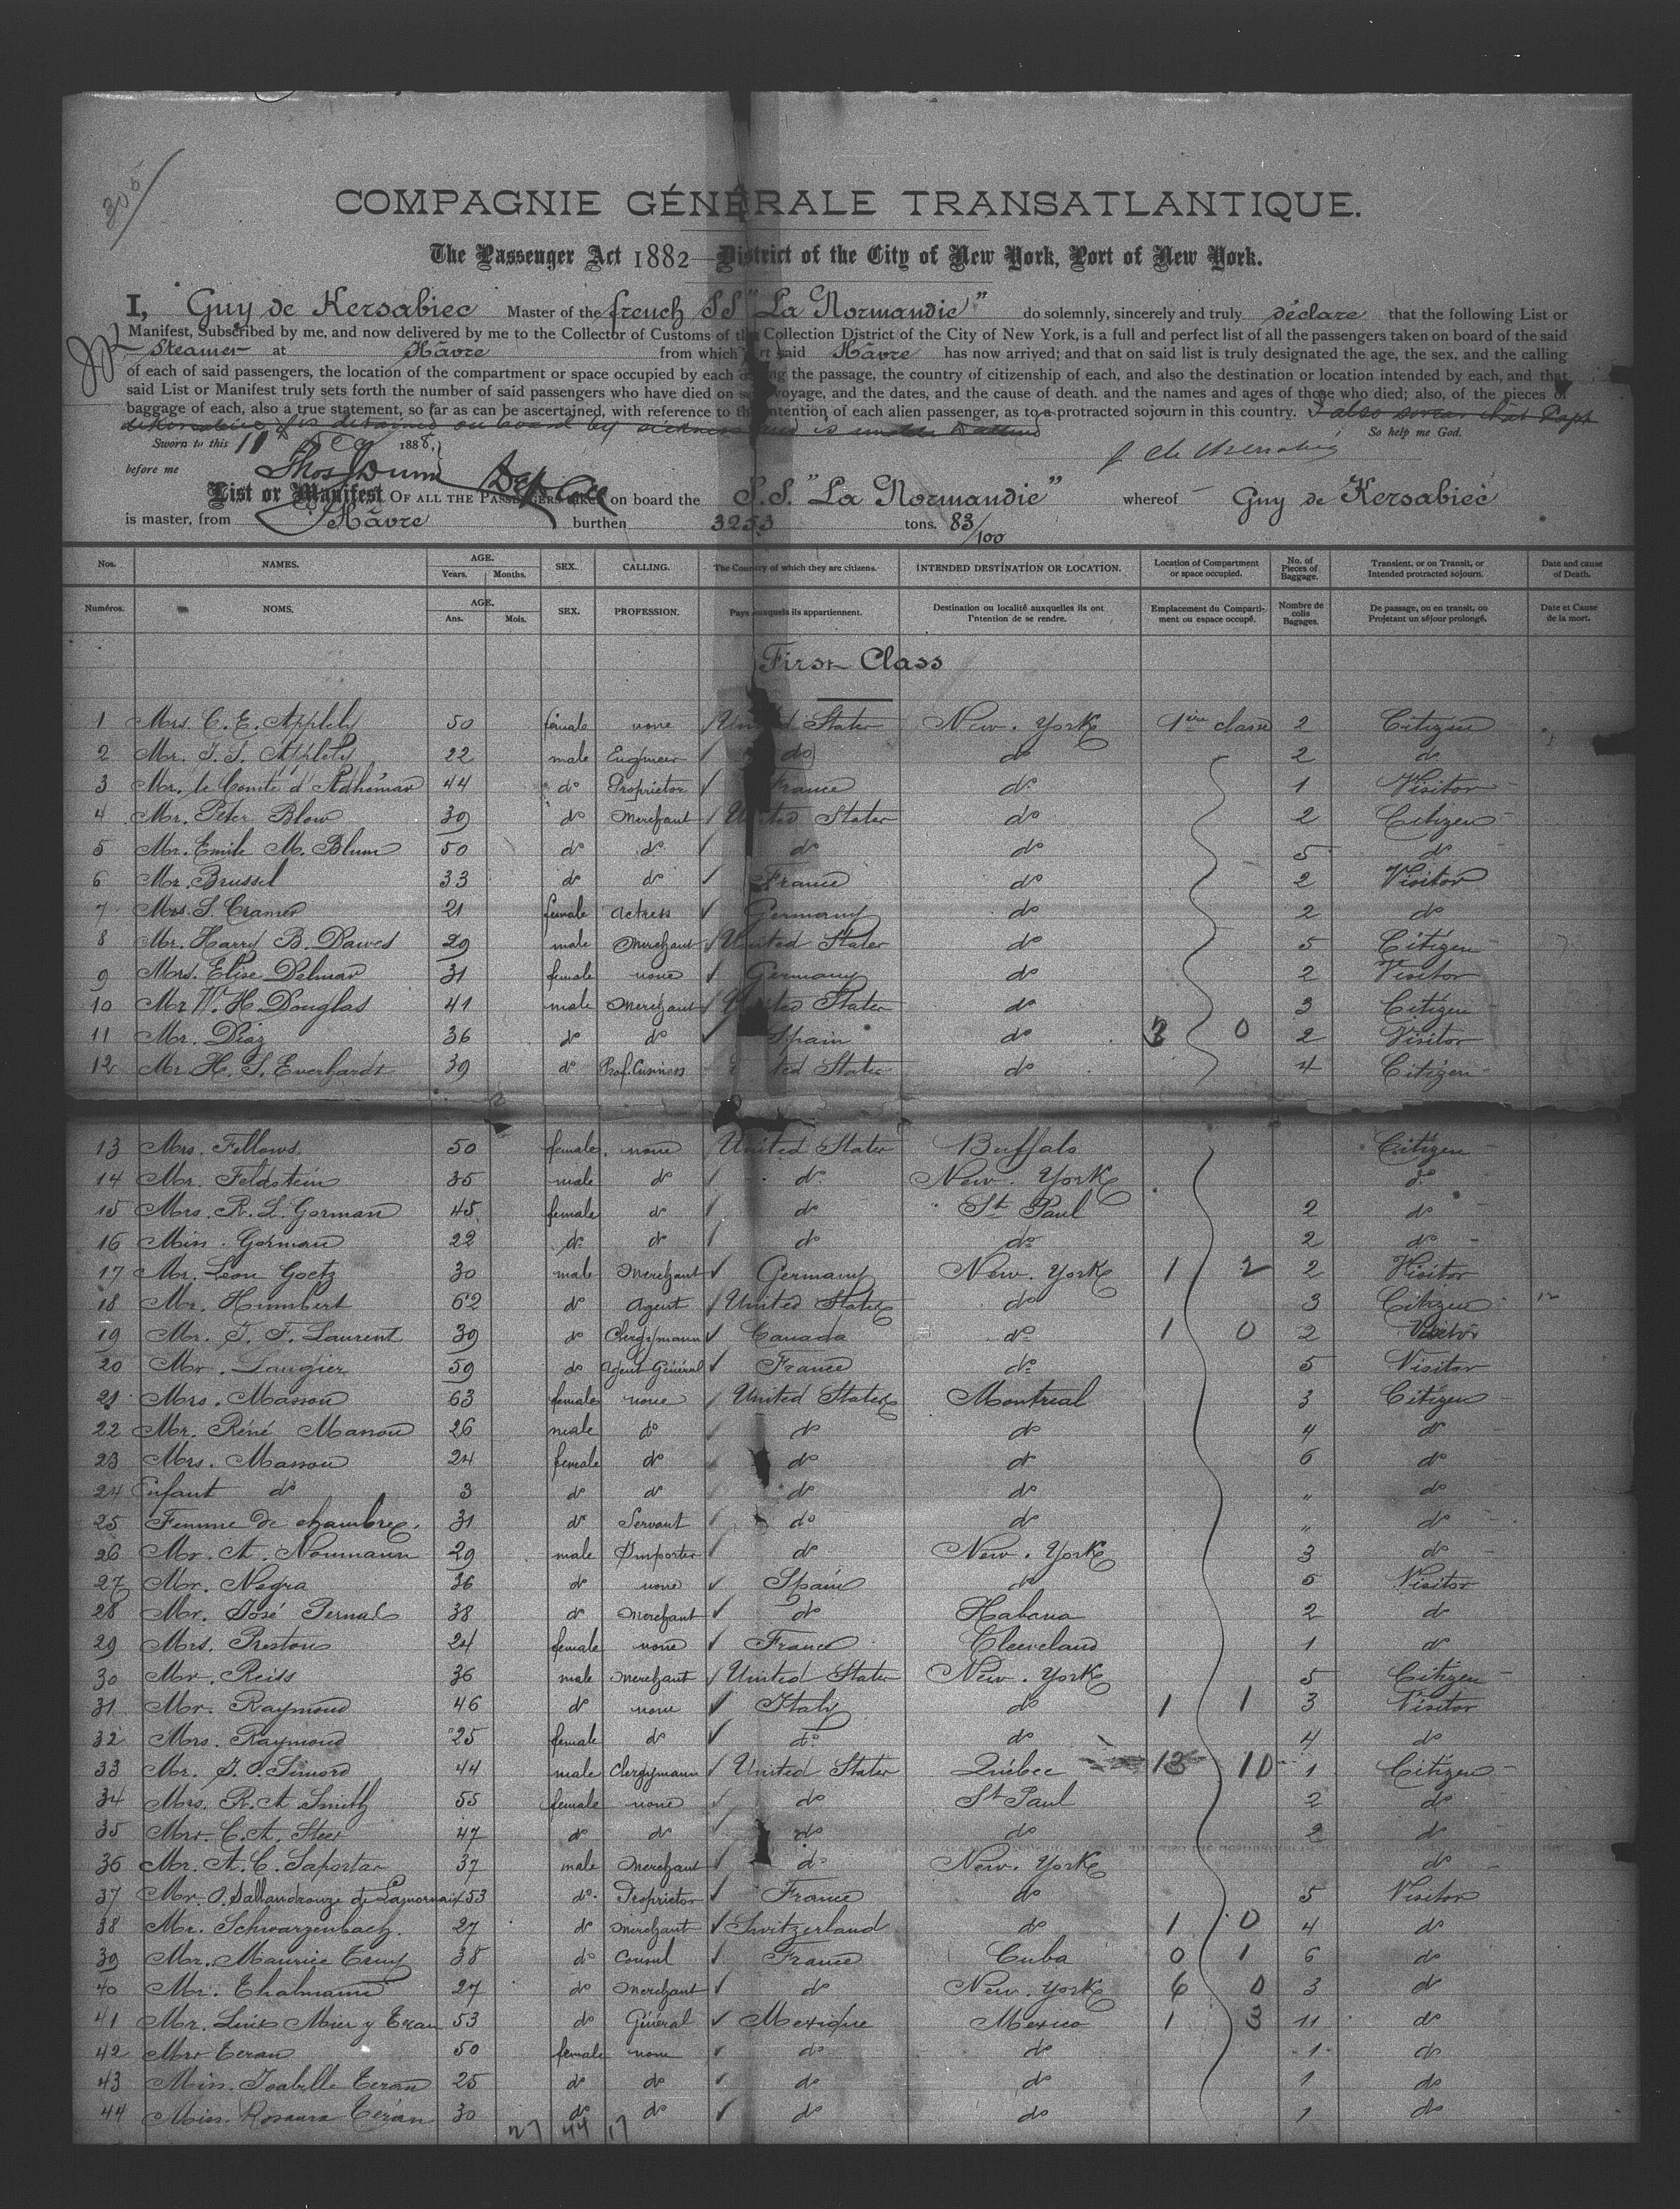 305
COMPAGNIE GÉNÉRALE TRANSATLANTIQUE.
The Passenger Act 1882 District of the City of New York, Port of New York.
I, Guy de Kersabiec Master of the french SS "La Normandie" do solemnly, sincerely and truly déclare that the following List or
Manifest, Subscribed by me, and now delivered by me to the Collector of Customs of the Collection District of the City of New York, is a full and perfect list of all the passengers taken on board of the said
Steamer at Hâvre from which port said Hâvre has now arrived; and that on said list is truly designated the age, the sex, and the calling
of each of said passengers, the location of the compartment or space occupied by each during the passage, the country of citizenship of each, and also the destination or location intended by each, and that
said List or Manifest truly sets forth the number of said passengers who have died on said voyage, and the dates, and the cause of death, and the names and ages of those who died; also, of the pieces of
baggage of each, also a true statement, so far as can be ascertained, with reference to the intention of each alien passenger, as to a protracted sojourn in this country. I also swear that Capt
dekersabiec is detained on board by sickness and is unable to attend So help me God.
Sworn to this 11 Dec 1888,
before me Thos Dunn Dep Col
List or Manifest OF ALL THE PASSENGERS taken on board the S.S. "La Normandie" whereof Guy de Kersabiec
is master, from Hâvre burthen 3253 tons. 83/100
Nos. NAMES. AGE. Years. Months. SEX. CALLING. The Country of which they are citizens. INTENDED DESTINATION OR LOCATION. Location of Compartment or space occupied. No. of Pieces of Baggage. Transient, or on Transit, or Intended protracted sejourn. Date and cause of Death.
Numéros. NOMS. AGE. Ans. Mois. SEX. PROFESSION. Pays auxquels ils appartiennent. Destination ou localité auxquelles ils ont l'intention de se rendre. Emplacement du Comparti-ment ou espace occupé. Nombre de colis Bagages. De passage, ou en transit, ou Projetant un séjour prolongé. Date et Cause de la mort.
First Class
1 Mrs. C. E. Appleby 50 female none United States New. York 1ère class 2 Citizen
2 Mr. T. S. Appleby 22 male Engineer do do 2 do
3 Mr. le Comte d'Adhémar 44 do Proprietor France do 1 Visitor
4 Mr. Peter Blow 39 do Merchant United States do 2 Citizen
5 Mr. Emile M. Blum 50 do do do do 5 do
6 Mr. Brussel 33 do do France do 2 Visitor
7 Mrs. S. Cramer 21 female Actress Germany do 2 do
8 Mr. Harry B. Dawes 29 male Merchant United States do 5 Citizen
9 Mrs. Elise Delmar 31 female none Germany do 2 Visitor
10 Mr. W. H. Douglas 41 male Merchant United States do 3 Citizen
11 Mr. Diaz 36 do do Spain do 3 0 2 Visitor
12 Mr H. S. Everhardt 39 do United States do 4 Citizen
13 Mrs. Fellows 50 female none United States Buffalo Citizen
14 Mr. Feldstein 35 male do do New. York do
15 Mrs. R. L. Gorman 45 female do do St Paul 2 do
16 Miss. Gorman 22 do do do do 2 do
17 Mr. Leon Goetz 30 male Merchant Germany New. York 1 2 2 Visitor
18 Mr. Humbert 62 do Agent United States do 3 Citizen
19 Mr. T. F. Laurent 39 do Clergymann Canada do 1 0 2 Visitor
20 Mr. Laugier 59 do Agent Général France do 5 Visitor
21 Mrs. Masson 63 female none United States Montreal 3 Citizen
22 Mr. Réné Masson 26 male do do do 4 do
23 Mrs. Masson 24 female do do do 6 do
24 Enfant do 3 do do do do " do
25 Femme de chambre. 31 do Servant do do " do
26 Mr. A. Noumann 29 male Importer do New. York 3 do
27 Mr. Negra 36 do none Spain do 5 Visitor
28 Mr. José Pernal 38 do Merchant do Habana 2 do
29 Mrs. Preston 24 female none France Cleveland 1 do
30 Mr. Reiss 36 male Merchant United States New. York 5 Citizen
31 Mr. Raymond 46 do none Italy do 1 1 3 Visitor
32 Mrs. Raymond 25 female do do do 4 do
33 Mr. Simard 44 male Clergymann United States Québec 13 10 1 Citizen
34 Mrs. R. A Smith 55 female none do St Paul 2 do
35 Mrs. C. A. Steer 47 do do do do 2 do
36 Mr. A. C. Saportar 37 male Merchant do New. York do
37 Mr. O. Sallandrouze de Lamornaix 53 do Proprietor France do 5 Visitor
38 Mr. Schwarzenbach. 27 do Merchant Switzerland do 1 0 4 do
39 Mr. Maurice 38 do Consul France Cuba 0 1 6 do
40 Mr. Thalmann 27 do Merchant do New. York 6 0 3 do
41 Mr. Mier y Teran 53 do Général Mexique Mexico 1 3 11 do
42 Mrs Teran 50 female none do do 1 do
43 Miss. Isabelle Teran 25 do do do do 1 do
44 Miss. Rosaura Téran 30 do do do do 1 do
27 44 17